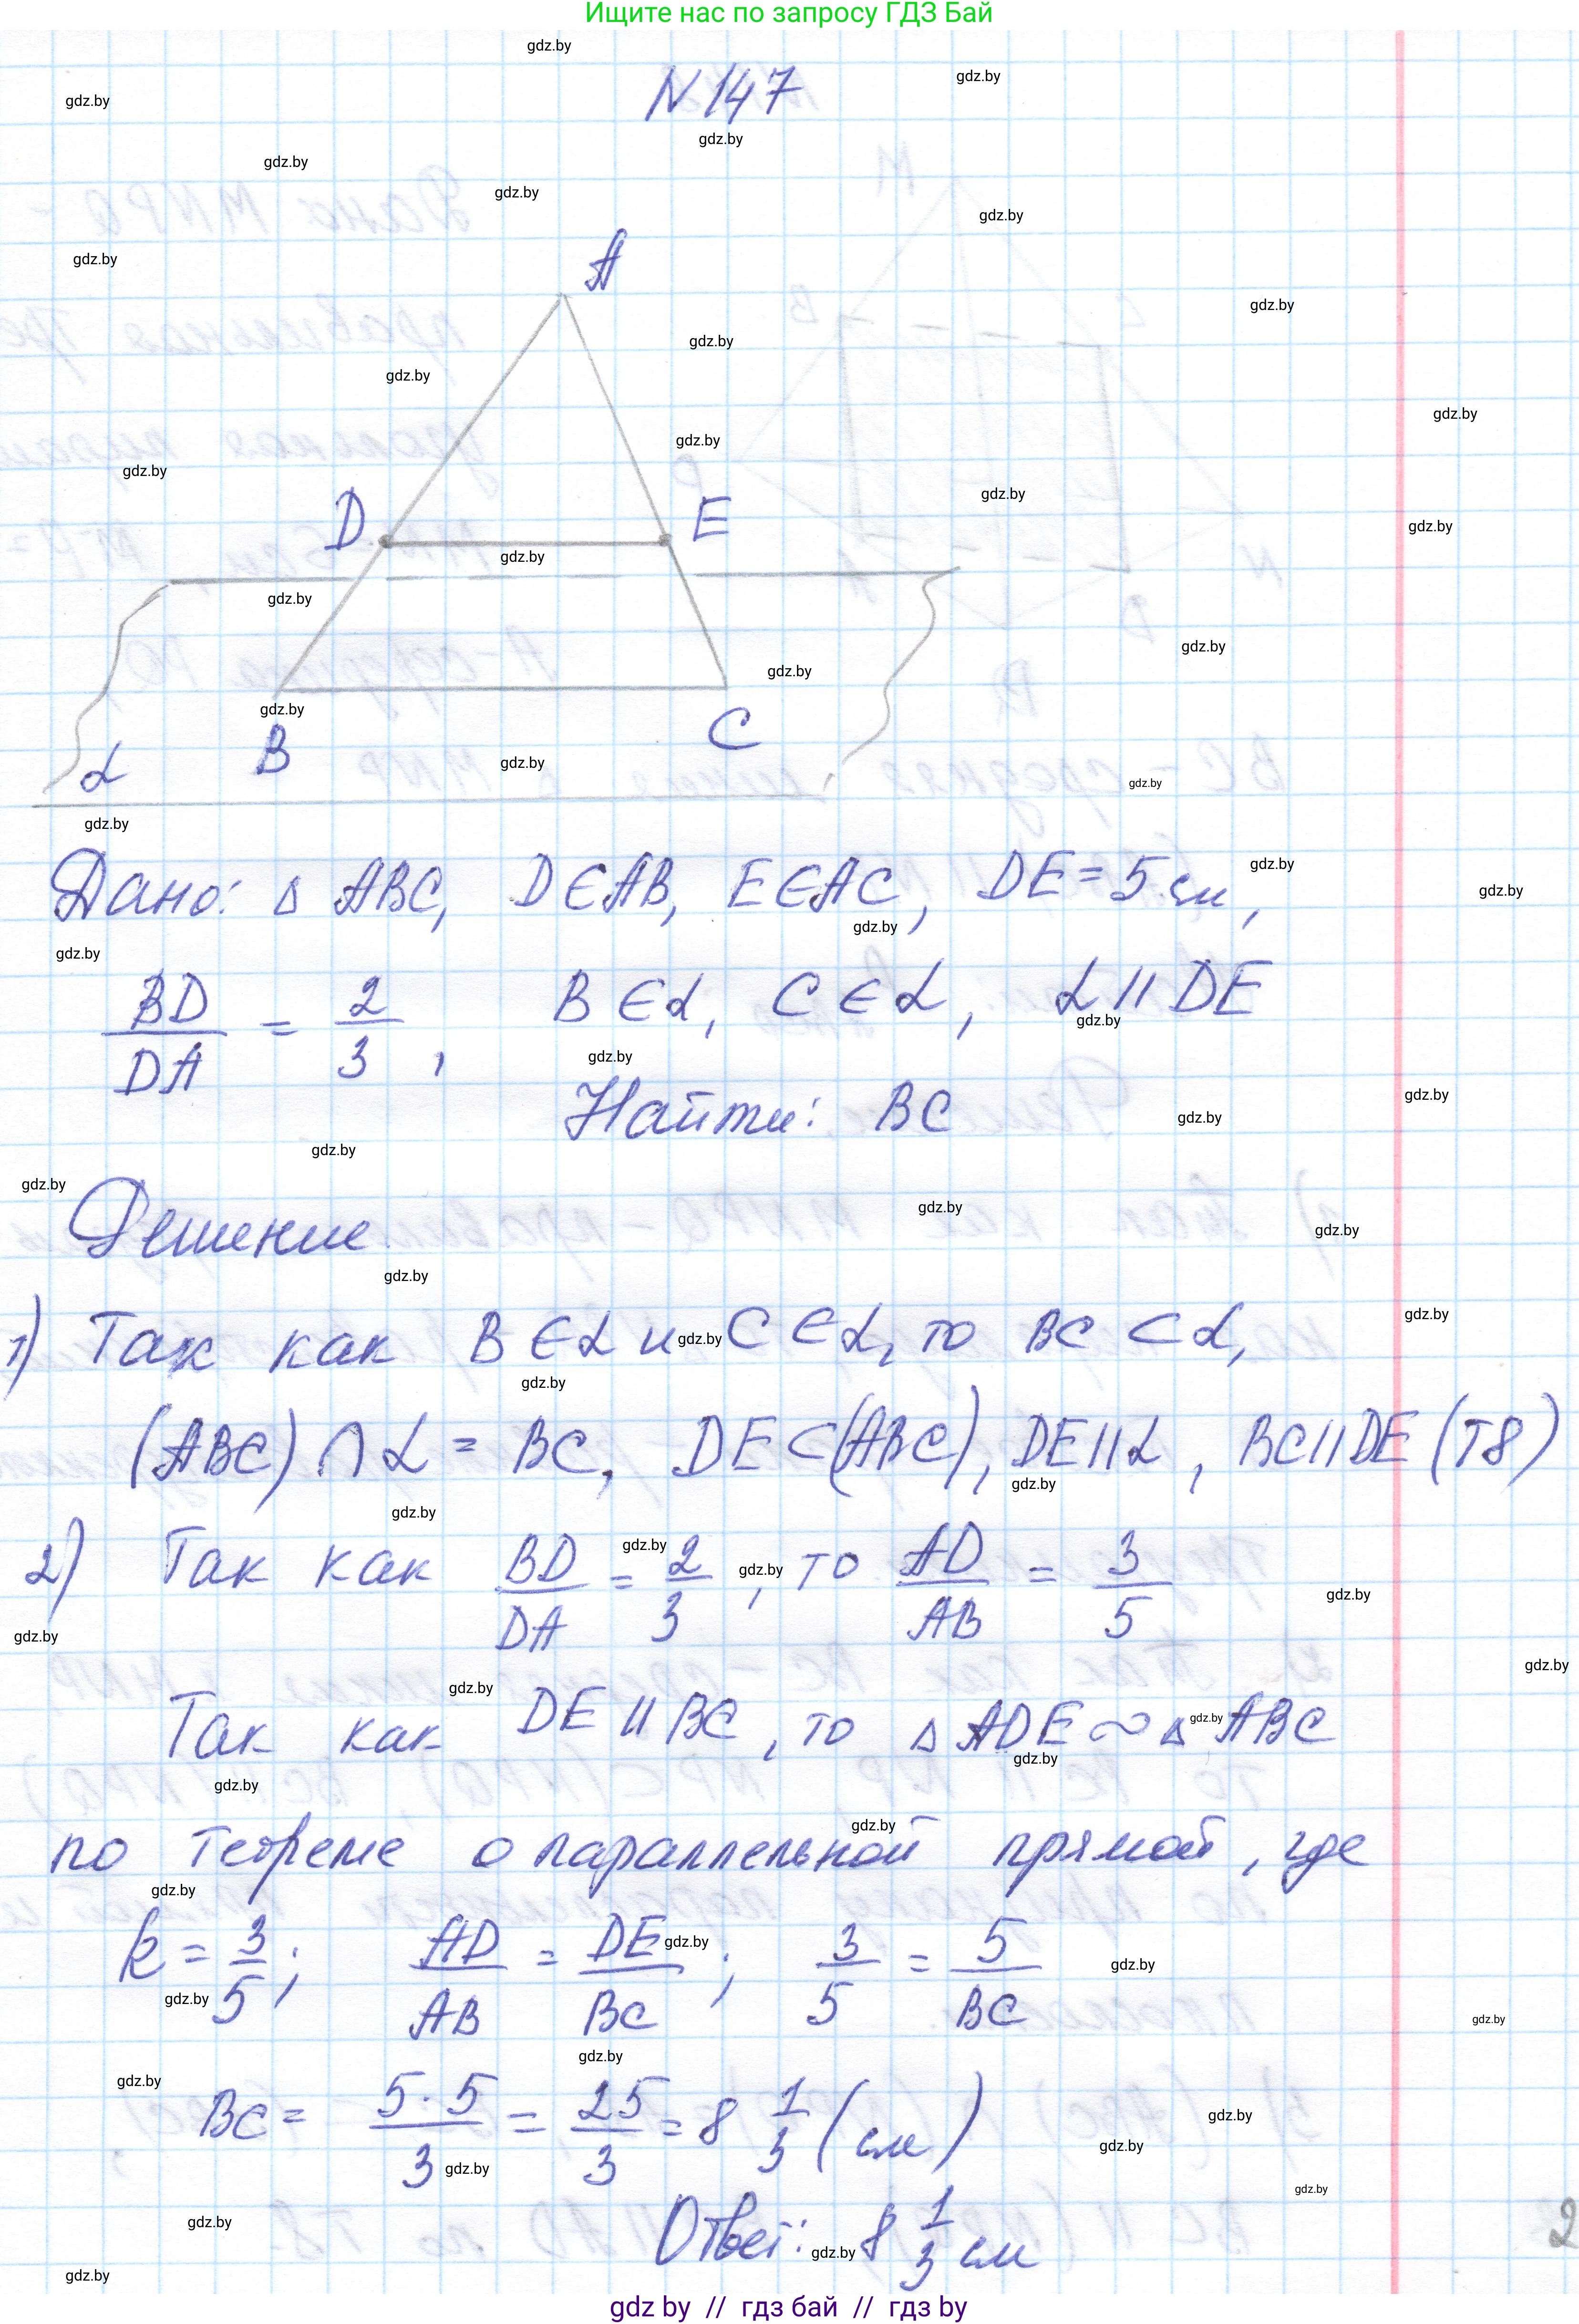 Ищите нас по запросу ГДЗ Бай
N 147
A
D
E
B
C
α
Дано: △ ABC, D∈AB, E∈AC, DE = 5 см,
BD/DA = 2/3, B∈α, C∈α, α || DE
Найти: BC
Решение
1) Так как B∈α и C∈α, то BC ⊂ α,
(ABC) ∩ α = BC, DE⊂(ABC), DE||α, BC||DE (T8)
2) Так как BD/DA = 2/3, то AD/AB = 3/5
Так как DE || BC, то △ ADE ~ △ ABC
по теореме о параллельной прямой, где
k = 3/5; AD/AB = DE/BC; 3/5 = 5/BC
BC = 5·5/3 = 25/3 = 8 1/3 (см)
Ответ: 8 1/3 см
2
gdz by // гдз бай // гдз by